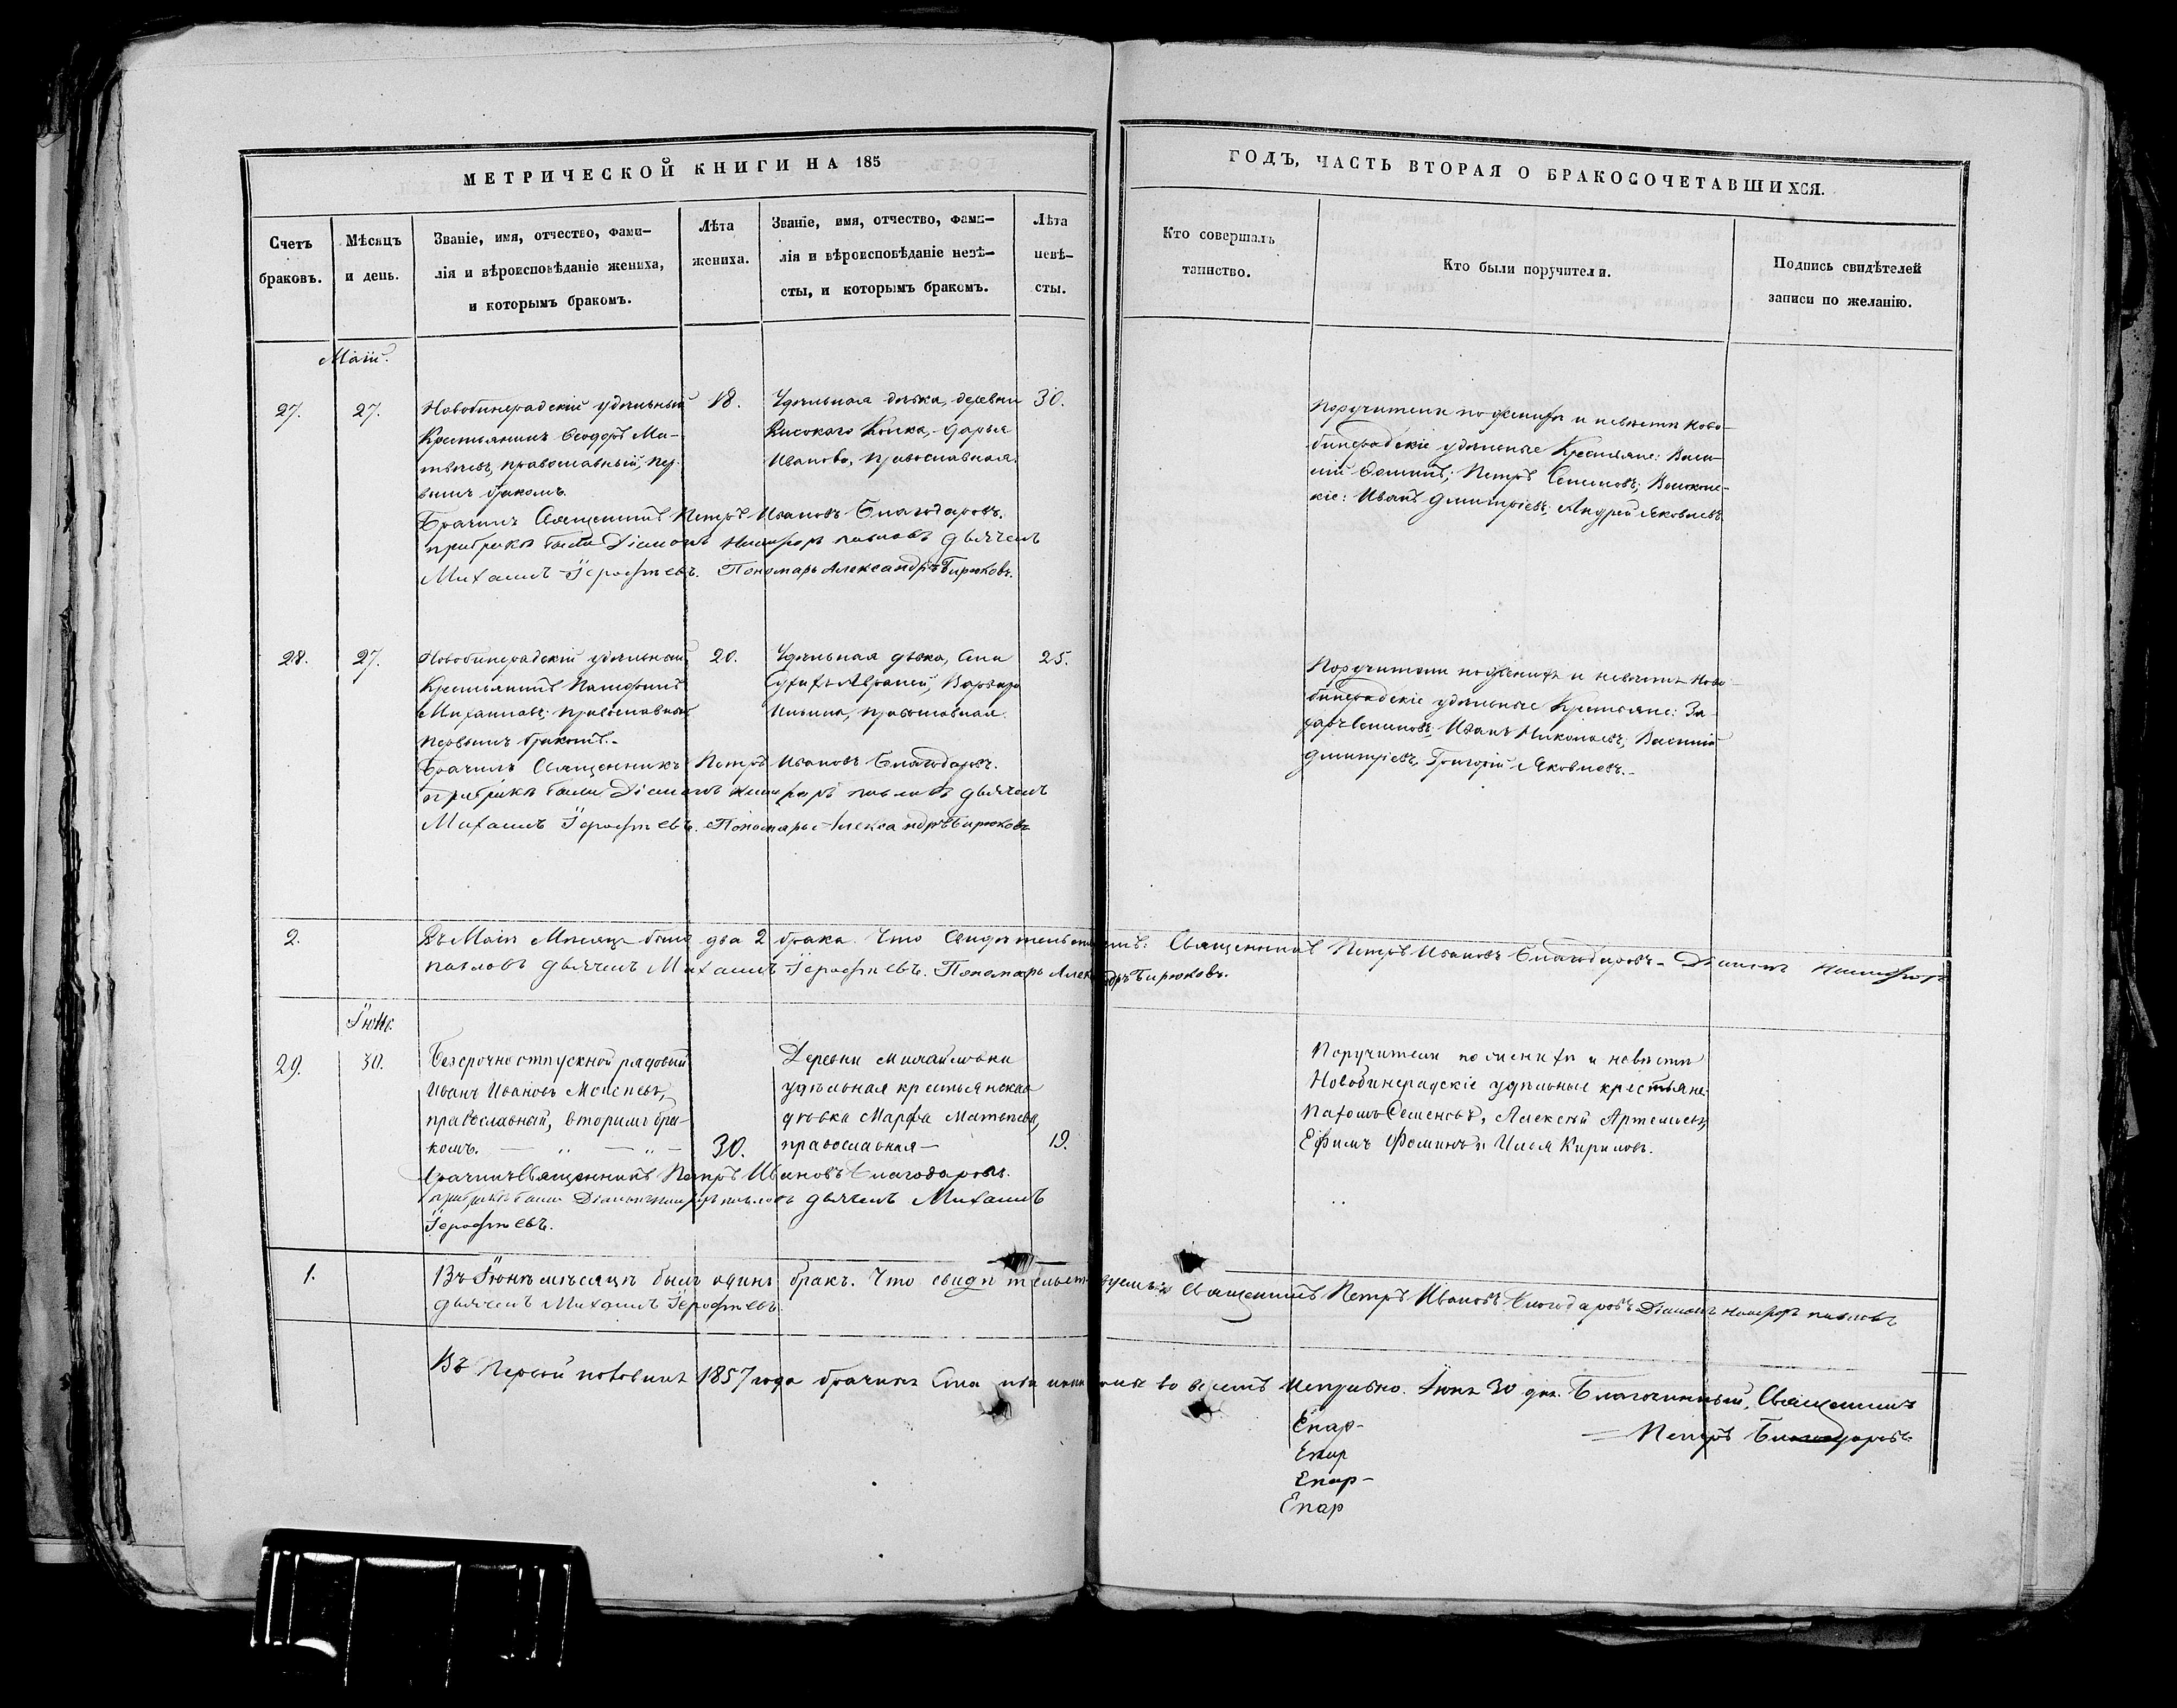 МЕТРИЧЕСКОЙ КНИГИ НА 185
ГОДЪ, ЧАСТЬ ВТОРАЯ О БРАКОСОЧЕТАВШИХСЯ.
Счетъ
браковъ.
Мѣсяцъ
и день.
Званіе, имя, отчество, фами-
лія и вѣроисповѣданіе жениха,
и которымъ бракомъ.
Лѣта
жениха.
Званіе, имя, отчество, фами-
лія и вѣроисповѣданіе невѣ-
сты, и которымъ бракомъ.
Лѣта
невѣ-
сты.
Кто совершалъ
таинство.
Кто были поручители.
Подпись свидѣтелей
записи по желанію.
Маій.
27.
27.
Новобинарадскій удѣльный
Крестьянинъ Ѳеодоръ Ма-
твѣевъ, православный, пер-
вымъ бракомъ.
18.
Удѣльная дѣвка, деревни
Высокаго Колка, Дарья
Иванова, православная.
30.
Поручители по женихѣ и невѣстѣ Ново-
бинарадскіе удѣльные Крестьяне: Васи-
лій Ѳоминъ; Петръ Семеновъ;
кіе: Иванъ Дмитріевъ; Андрей Яковлевъ
Брачилъ Священникъ Петръ Ивановъ Благодаровъ.
при бракѣ были Діаконъ Никифоръ павловъ дьячекъ
Михаилъ Іерофѣевъ. Пономарь Александръ Бирюковъ.
28.
27.
Новобинарадскій удѣльный
Крестьянинъ Памфилъ
Михайловъ; православный
первымъ бракомъ.-
20.
Удѣльная дѣвка, села
Сухихъ Авралей, Варвара
Ильина, православная.
25.
Поручители по женихѣ и невѣстѣ Ново-
бинарадскіе удѣльные Крестьяне: За-
харъ Семеновъ; Иванъ Николаевъ; Василій
Дмитріевъ, Григорій Яковлевъ.-
Брачилъ Священникъ Петръ Ивановъ Благодаровъ.
при бракѣ были Діаконъ Никифоръ павловъ дьячекъ
Михаилъ Іерофѣевъ. Пономарь Александръ Бирюковъ
2.
Въ Маіѣ Мѣсяцѣ было два 2 брака. Что Свидѣтельствуемъ: Священникъ Петръ Ивановъ Благодаровъ - Діаконъ Никифоръ
павловъ дьячекъ Михаилъ Іерофѣевъ. Пономарь Александръ Бирюковъ.
Іюнь.
29.
30.
Безсрочноотпускной рядовый
Иванъ Ивановъ Моисѣевъ,
православный, вторымъ бра-
комъ. — „ — „ —
30.
Деревни Михайловки
удѣльная крестьянская
дѣвка Марфа Матвѣева,
православная —
19.
Поручители по женихѣ и невѣстѣ
Новобинарадскіе удѣльные крестьяне:
Пахомъ Семеновъ, Алексѣй Артемьевъ,
Ефимъ Фоминъ и Илья Кириловъ.
брачилъ Священникъ Петръ Ивановъ Благодаровъ.
при бракѣ были Діаконъ Никифоръ павловъ дьячекъ Михаилъ
Іерофѣевъ.
1.
Въ Іюнѣ мѣсяцѣ былъ одинъ бракъ. Что свидѣтельствуемъ: Священникъ Петръ Ивановъ Благодаровъ Діаконъ Никифоръ павловъ
дьячекъ Михаилъ Іерофѣевъ.
Въ Первой половинѣ 1857 года брачныя во всемъ исправно. Іюня 30 дня. Благочинный, Священникъ
Петръ Благодаровъ.
Епар-
Епар
Епар-
Епар